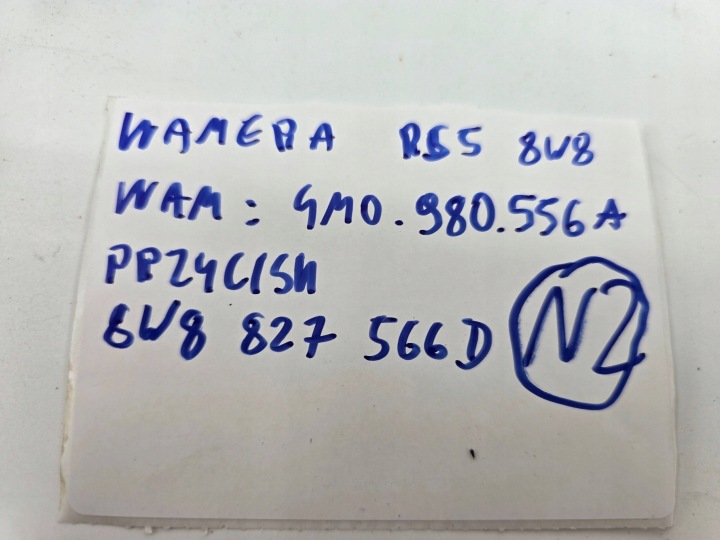 KAMERA RS5 8W8
KAM: 4M0.980.556A
PRZYCISK
8W8 827 566D
N2